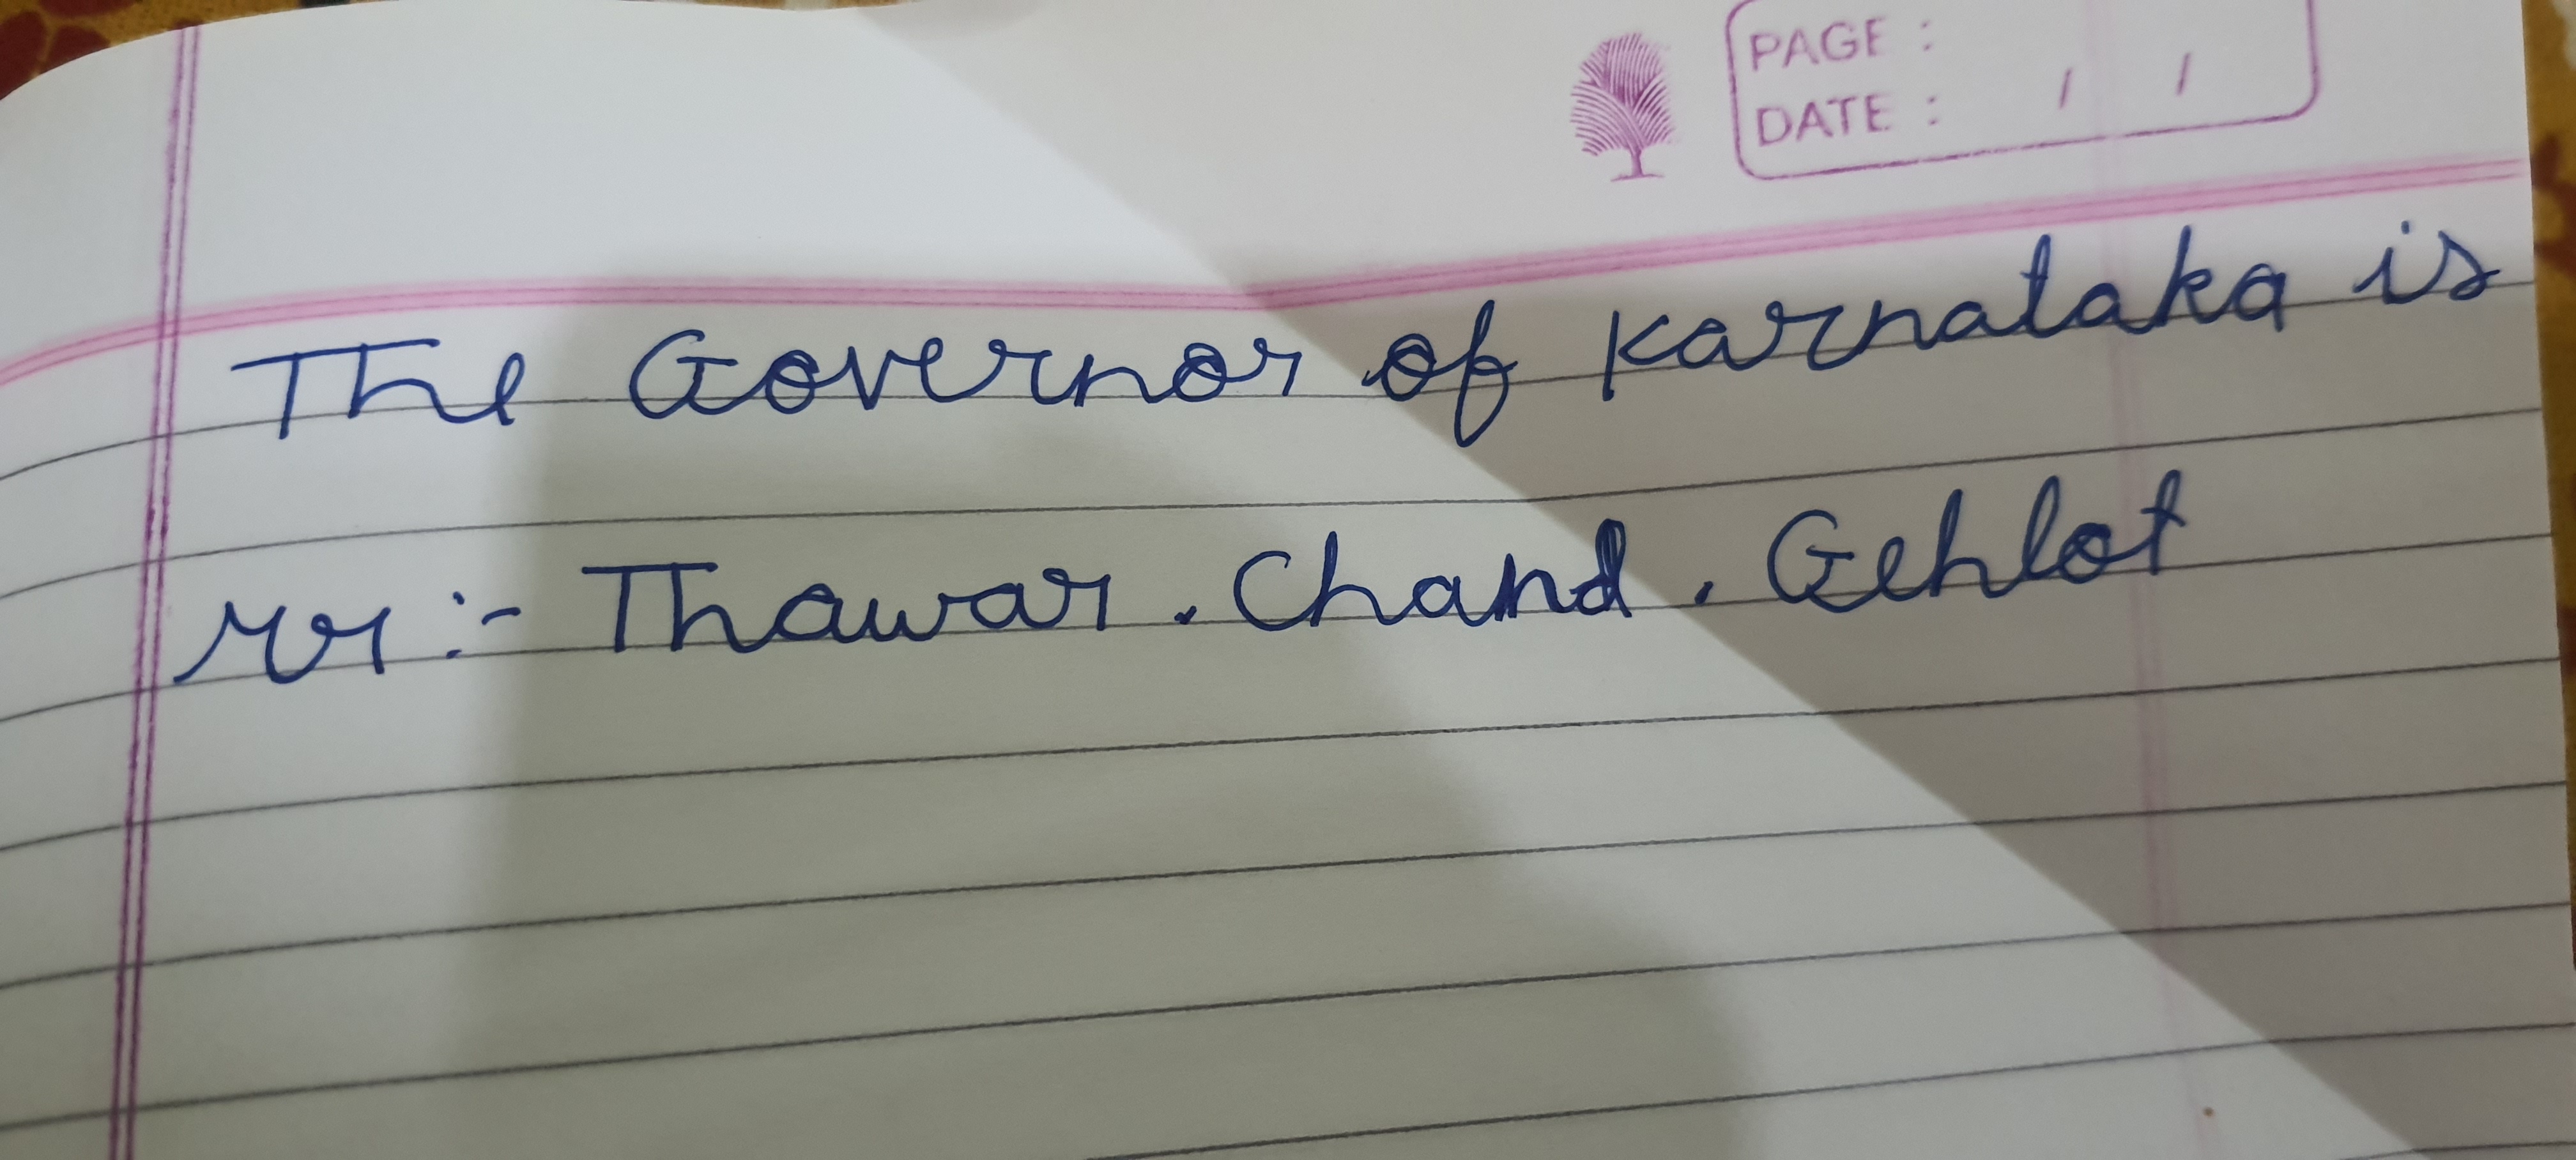 PAGE :
DATE : / /
The Governor of Karnataka is
Mr :- Thawar . Chand . Gehlot